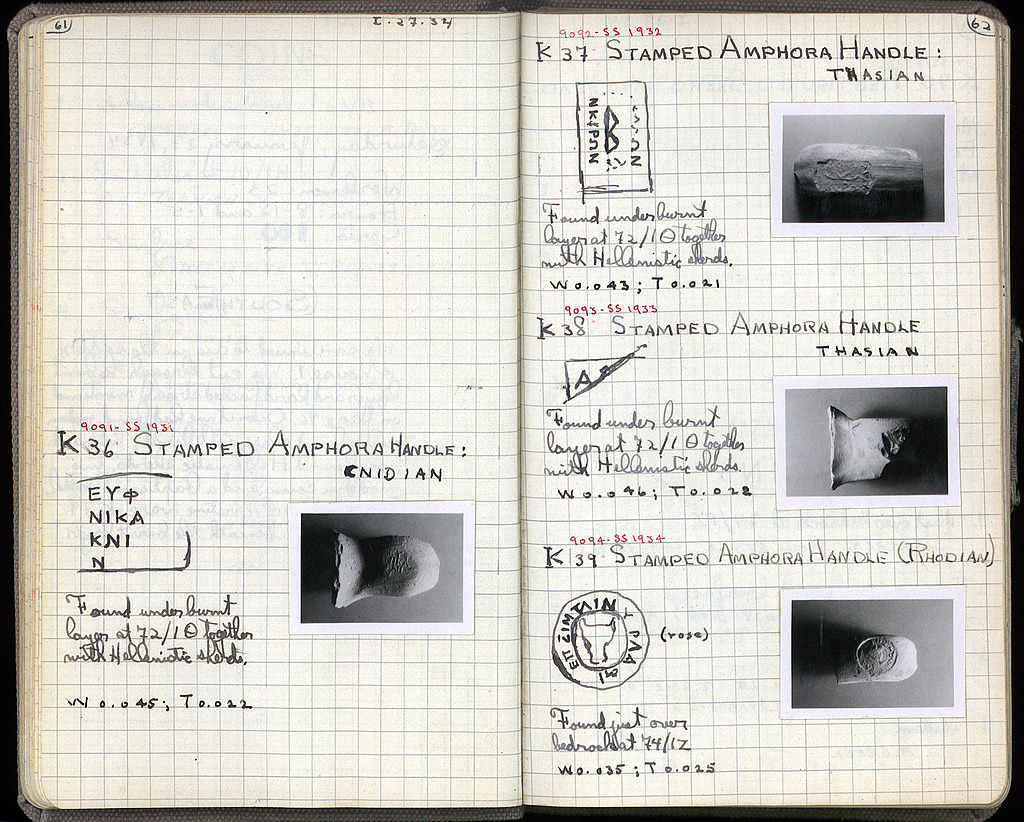 61
I-27-34
9091-SS 1931
K 36 STAMPED AMPHORA HANDLE:
CNIDIAN
ΕΥΦ
ΝΙΚΑ
ΚΝΙ
Ν
Found under burnt
layer at 72/IΘ together
with Hellenistic sherds.
W 0.045; T 0.022
62
9092-SS 1932
K 37 STAMPED AMPHORA HANDLE:
THASIAN
Found under burnt
layer at 72/IΘ together
with Hellenistic sherds.
W 0.043; T 0.021
9093-SS 1933
K 38 STAMPED AMPHORA HANDLE
THASIAN
A
Found under burnt
layer at 72/IΘ together
with Hellenistic sherds.
W 0.046; T 0.022
9094-SS 1934
K 39 STAMPED AMPHORA HANDLE (RHODIAN)
(rose)
Found just over
bedrock at 74/IZ
W 0.035; T 0.025